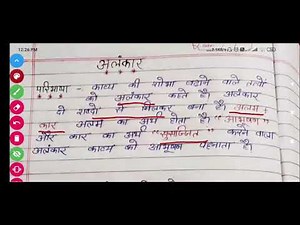 12:26 PM
अलंकार
परिभाषा - काव्य की शोभा बढ़ाने वाले तत्वों
को अलंकार कहते हैं। अलंकार
दो शब्दों से मिलकर बना है। अलम +
कार अलम का अर्थ होता है। "आभूषण"
और कार का अर्थ "सुसज्जित" करने वाला
अलंकार काव्य को आभूषण पहनाता है।